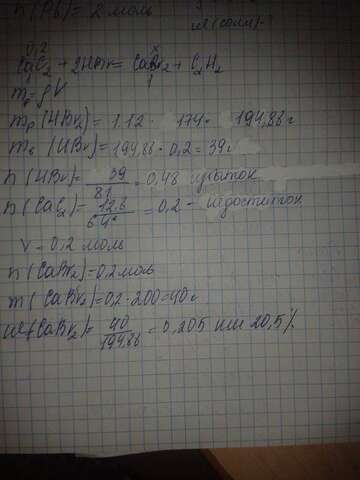 n(Pb) = 2 моль
ω(соли)-?
0,2 x
CaC₂ + 2HBr = CaBr₂ + C₂H₂
1 1
m = ρV
mр (HBr₂) = 1.12 · 174 = 194,88 г
mв (HBr) = 194,88 · 0,2 = 39 г
n(HBr) = 39/81 = 0,48 избыток
n(CaC₂) = 12,8/64 = 0,2 - недостаток
V - 0,2 моль
n(CaBr₂) = 0,2 моль
m(CaBr₂) = 0,2 · 200 = 40 г
ω(CaBr₂) = 40/194,88 = 0,205 или 20,5%